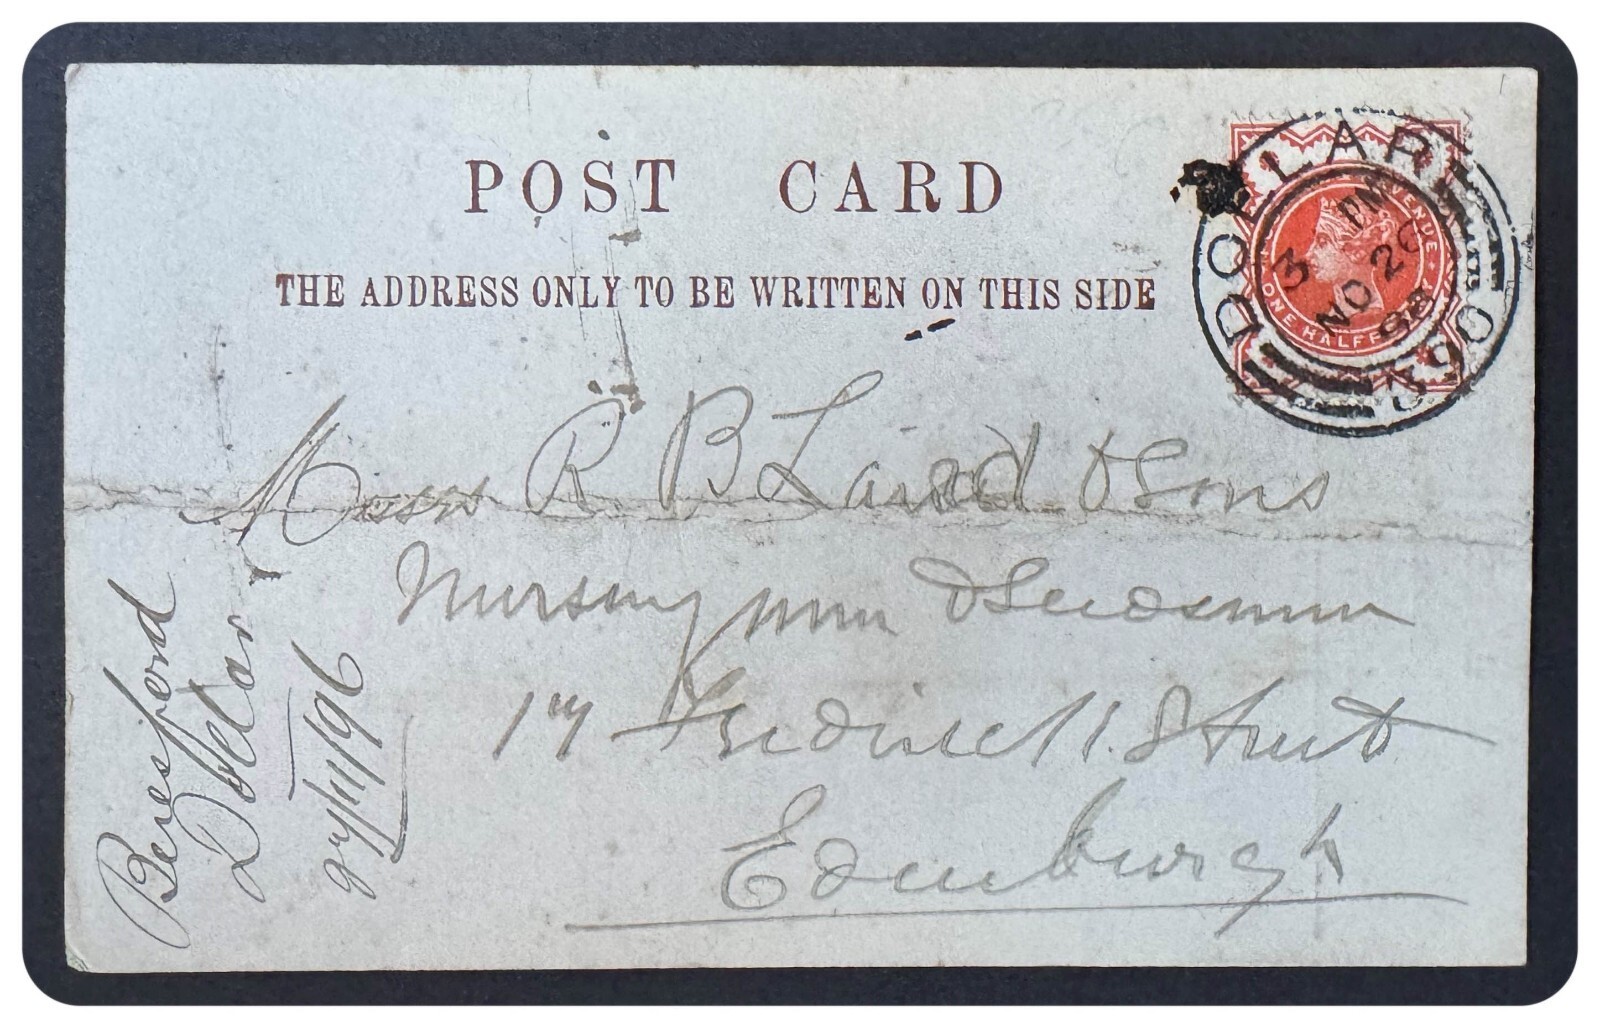 POST CARD
THE ADDRESS ONLY TO BE WRITTEN ON THIS SIDE
DOLLAR
3 PM
NO 26
390
REVENUE
ONE HALFPENNY
Messrs R B Laird & Sons
Nurserymen & Seedsmen
17 Frederick Street
Edinburgh
Beresford
Dollar
/11/96